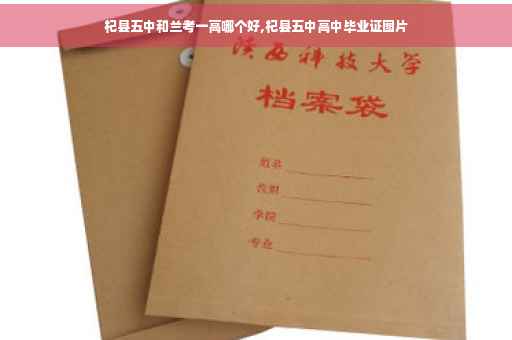 杞县五中和兰考一高哪个好,杞县五中高中毕业证图片
陕西科技大学
档案袋
姓名
学院
专业